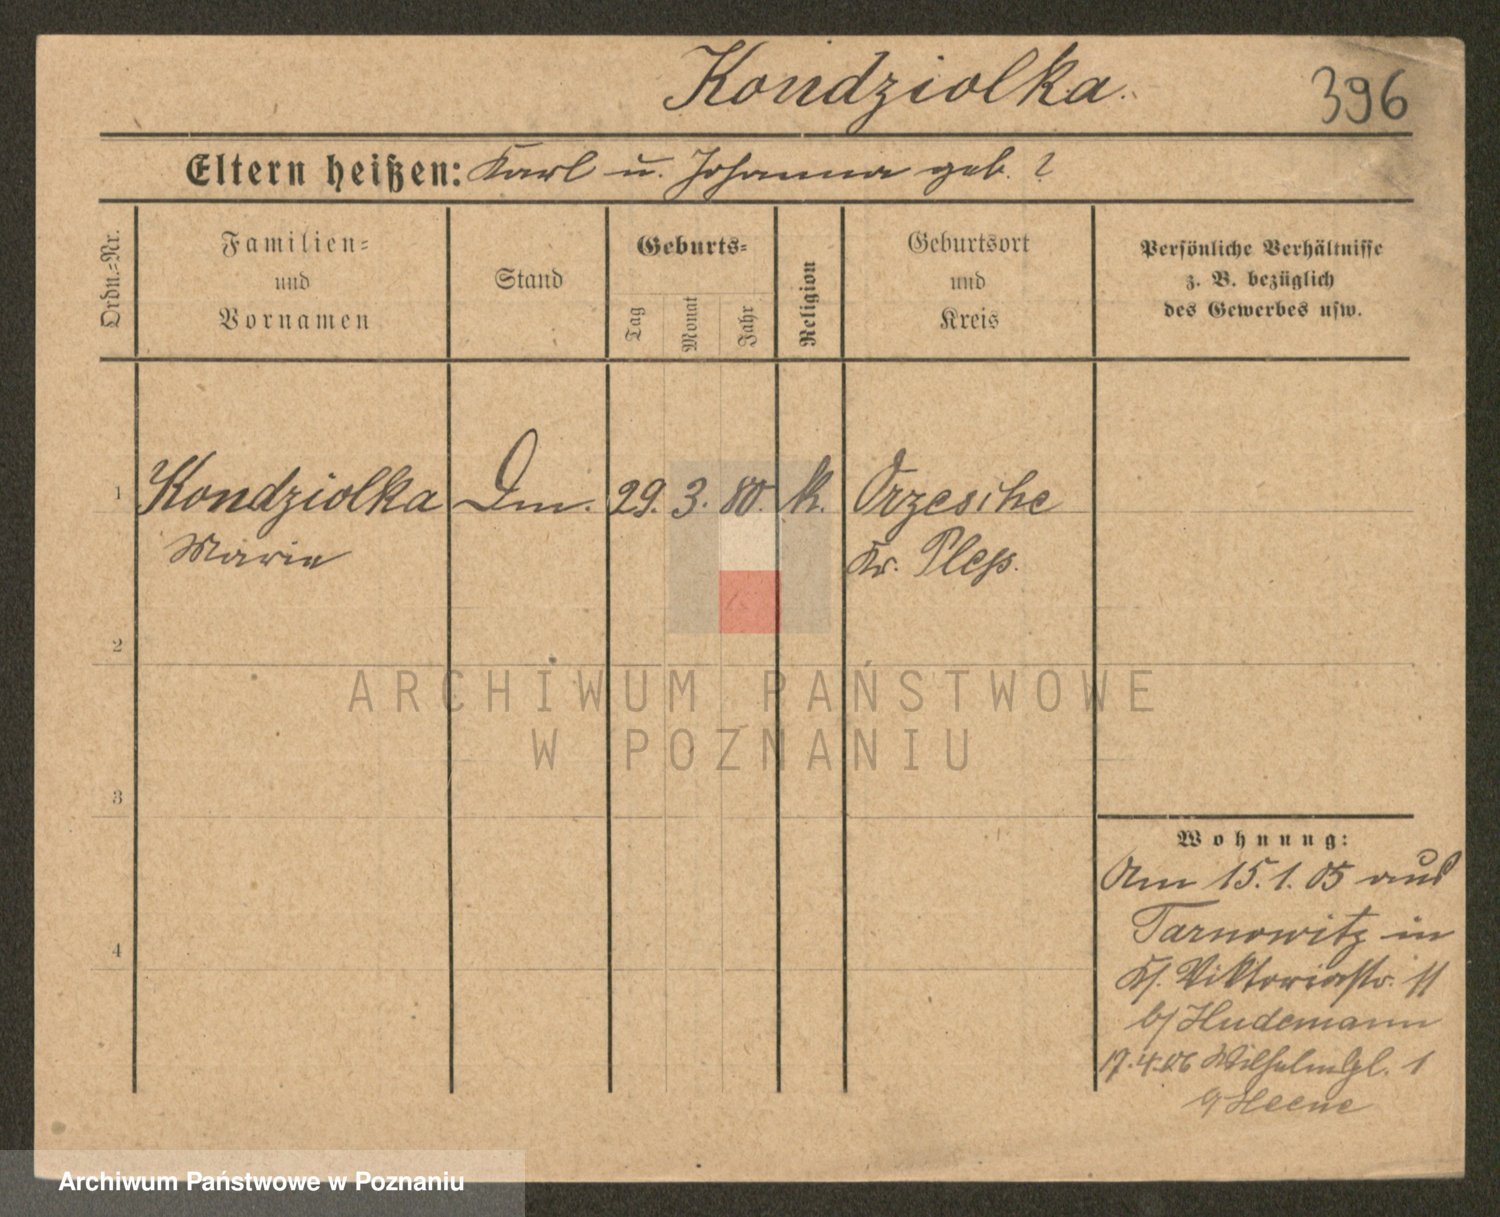 Kondziolka.
396
Eltern heißen: Karl u. Johanna geb. ?
Ordn.=Nr.
Familien=
und
Vornamen
Stand
Geburts=
Tag
Monat
Jahr
Religion
Geburtsort
und
Kreis
Persönliche Verhältnisse
z. B. bezüglich
des Gewerbes usw.
1 Kondziolka Dm. 29. 3. 80. k. Orzesche
Marie Kr. Pleß.
2
3
4
Wohnung:
Am 15.1.05 aus
Tarnowitz in
Viktoriastr. 11
b/ Hudemann
17.4.06 Wilhelmpl. 1
Heene
ARCHIWUM PAŃSTWOWE
W POZNANIU
Archiwum Państwowe w Poznaniu